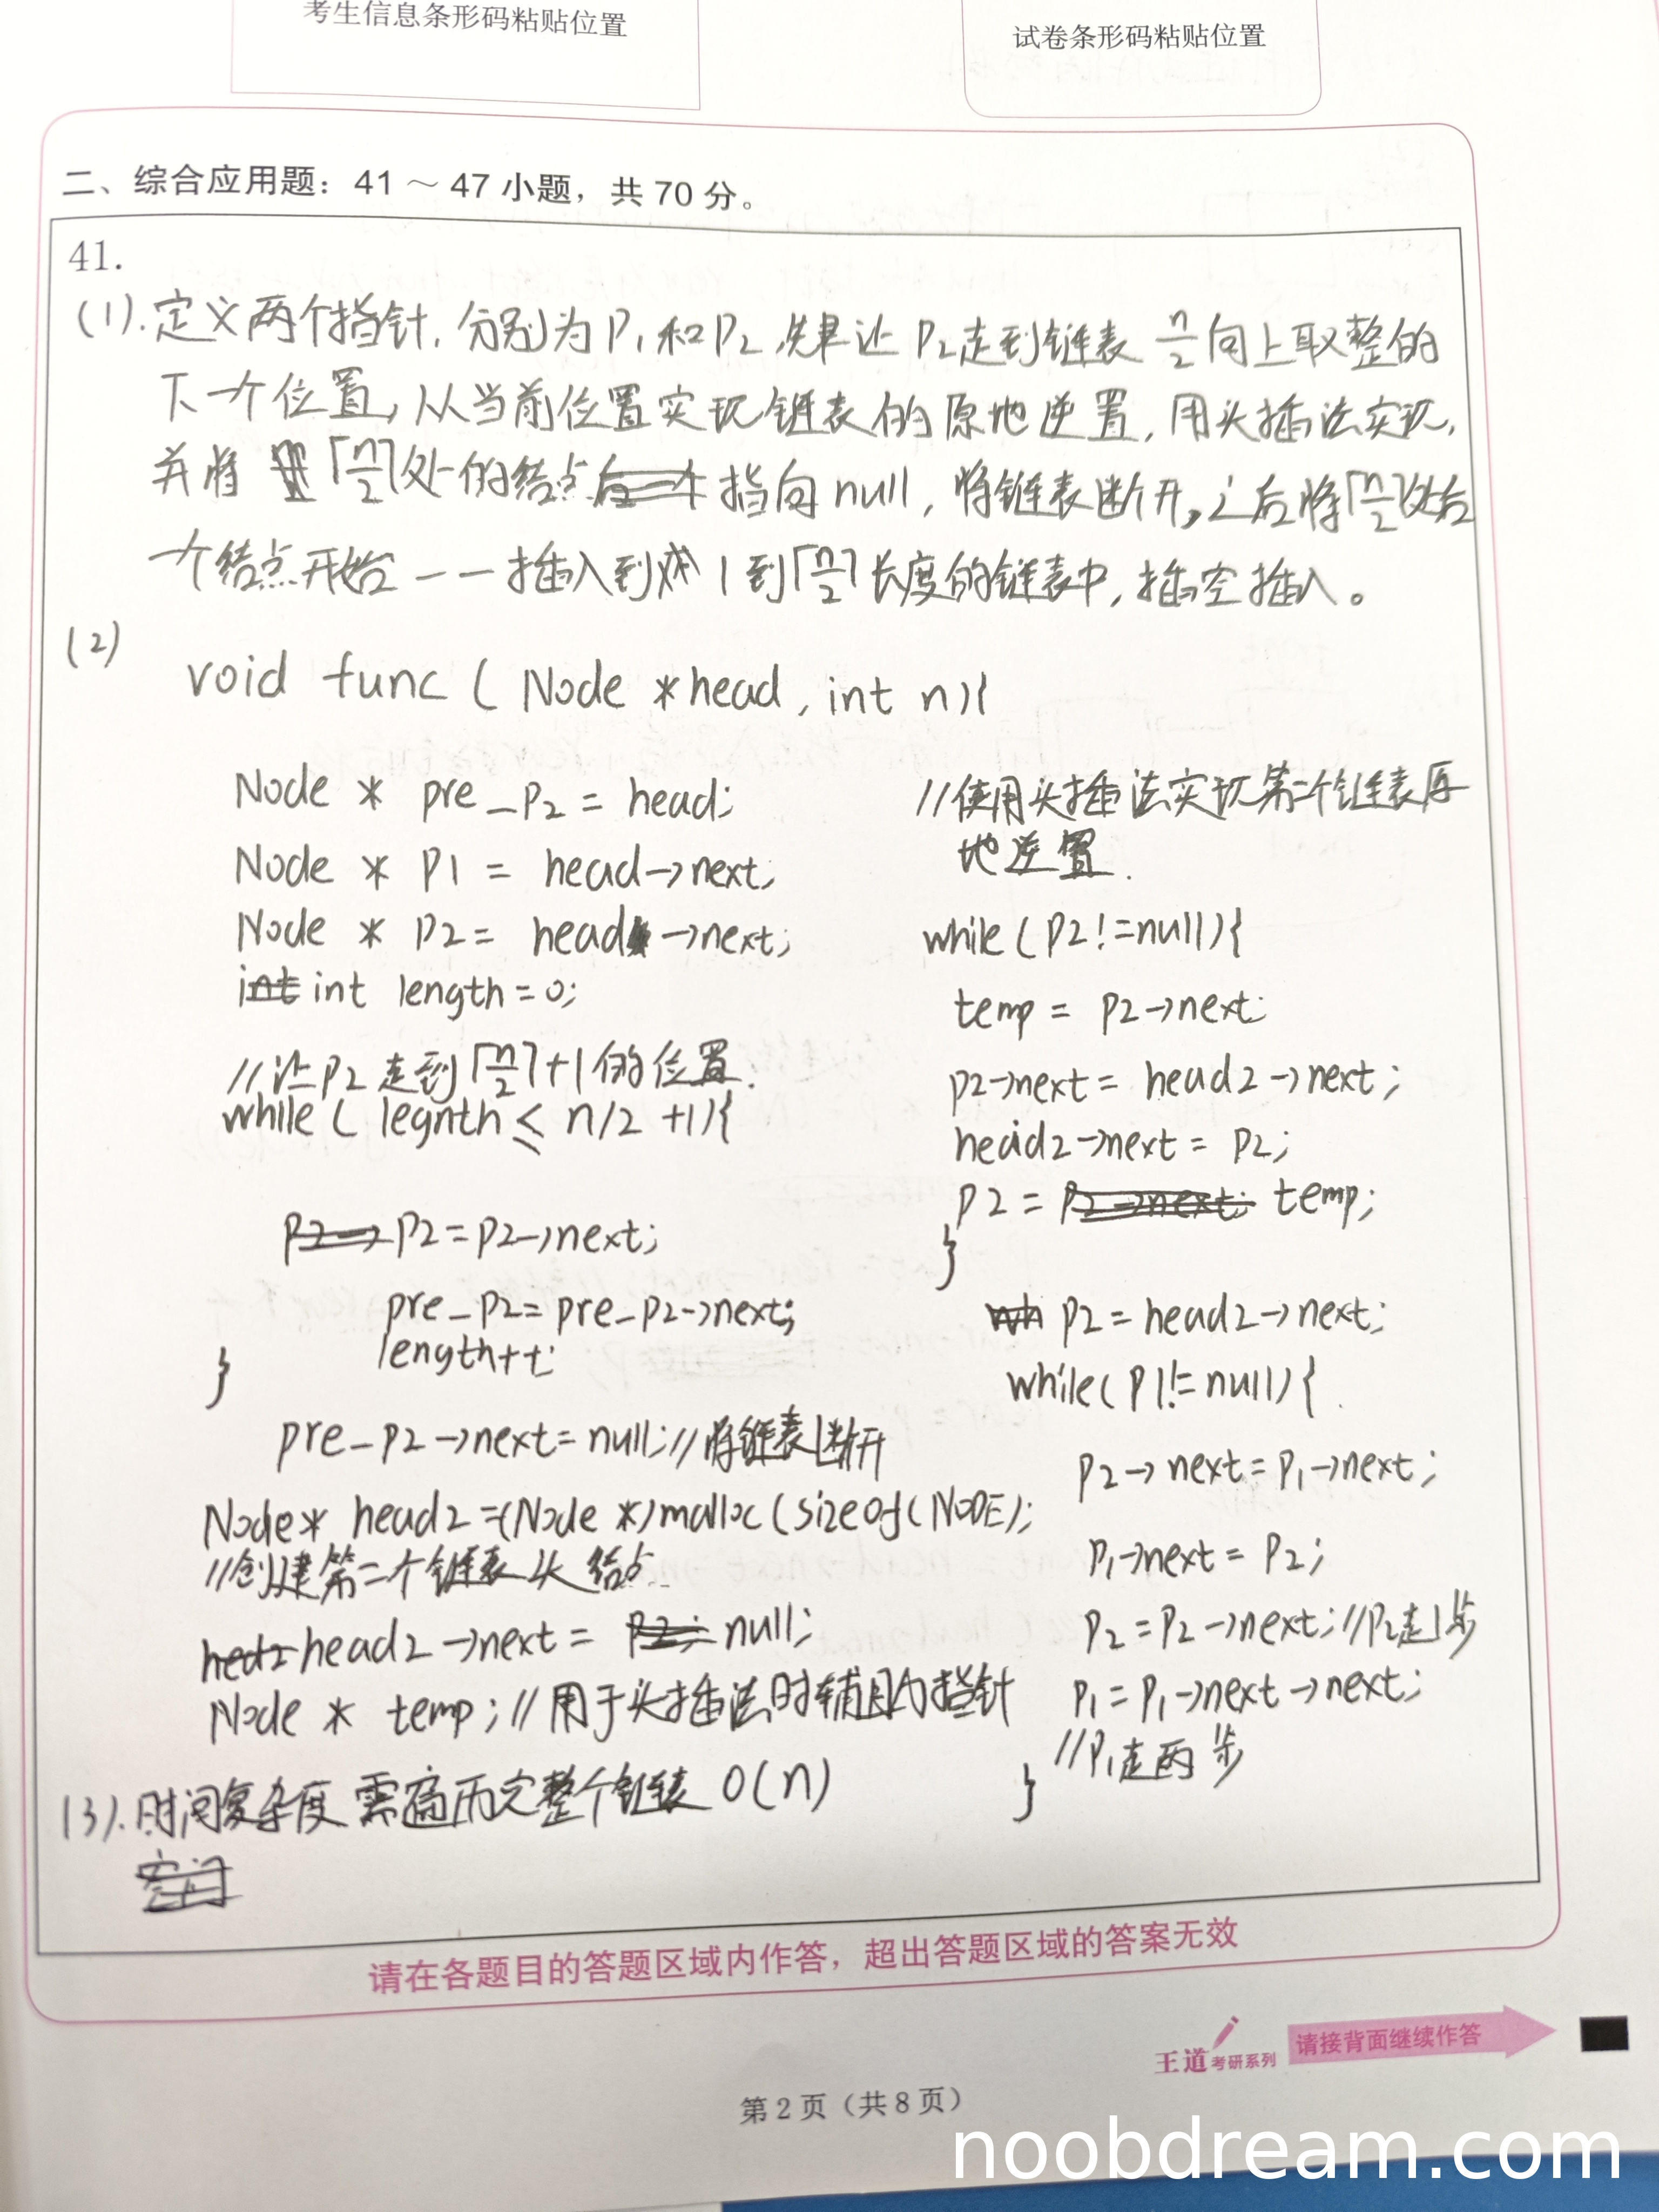 考生信息条形码粘贴位置
试卷条形码粘贴位置
二、综合应用题：41～47小题，共70分。
41.
(1).定义两个指针，分别为P₁和P₂，先让P₂走到链表 n/2 向上取整的
下一个位置，从当前位置实现链表的原地逆置，用头插法实现，
并将⌈n/2⌉处的结点指向null，将链表断开，之后将⌈n/2⌉处后
一个结点开始一一插入到从1到⌈n/2⌉长度的链表中，插空插入。
(2)
void func ( Node *head, int n){
Node * pre_p2 = head;
Node * P1 = head→next;
Node * P2 = head→next;
int length = 0;
//让P2走到⌈n/2⌉+1的位置.
while ( legnth ≤ n/2 +1){
P2 = P2→next;
pre_P2 = pre_P2→next;
length++;
}
pre_P2→next = null; //将链表断开
Node* head2 =(Node *)malloc(sizeof(NODE);
//创建第二个链表头结点
head2→next = null;
Node * temp; //用于头插法时辅助的指针
//使用头插法实现第二个链表原
地逆置.
while ( P2 != null){
temp = P2→next;
P2→next = head2→next;
head2→next = P2;
P2 = temp;
}
P2 = head2→next;
while( P1 != null){
P2→next = P1→next;
P1→next = P2;
P2 = P2→next; //P2走1步
P1 = P1→next→next;
//P1走两步
}
(3).时间复杂度 需遍历完整个链表 O(n)
请在各题目的答题区域内作答，超出答题区域的答案无效
王道考研系列
请接背面继续作答
第2页（共8页）
noobdream.com